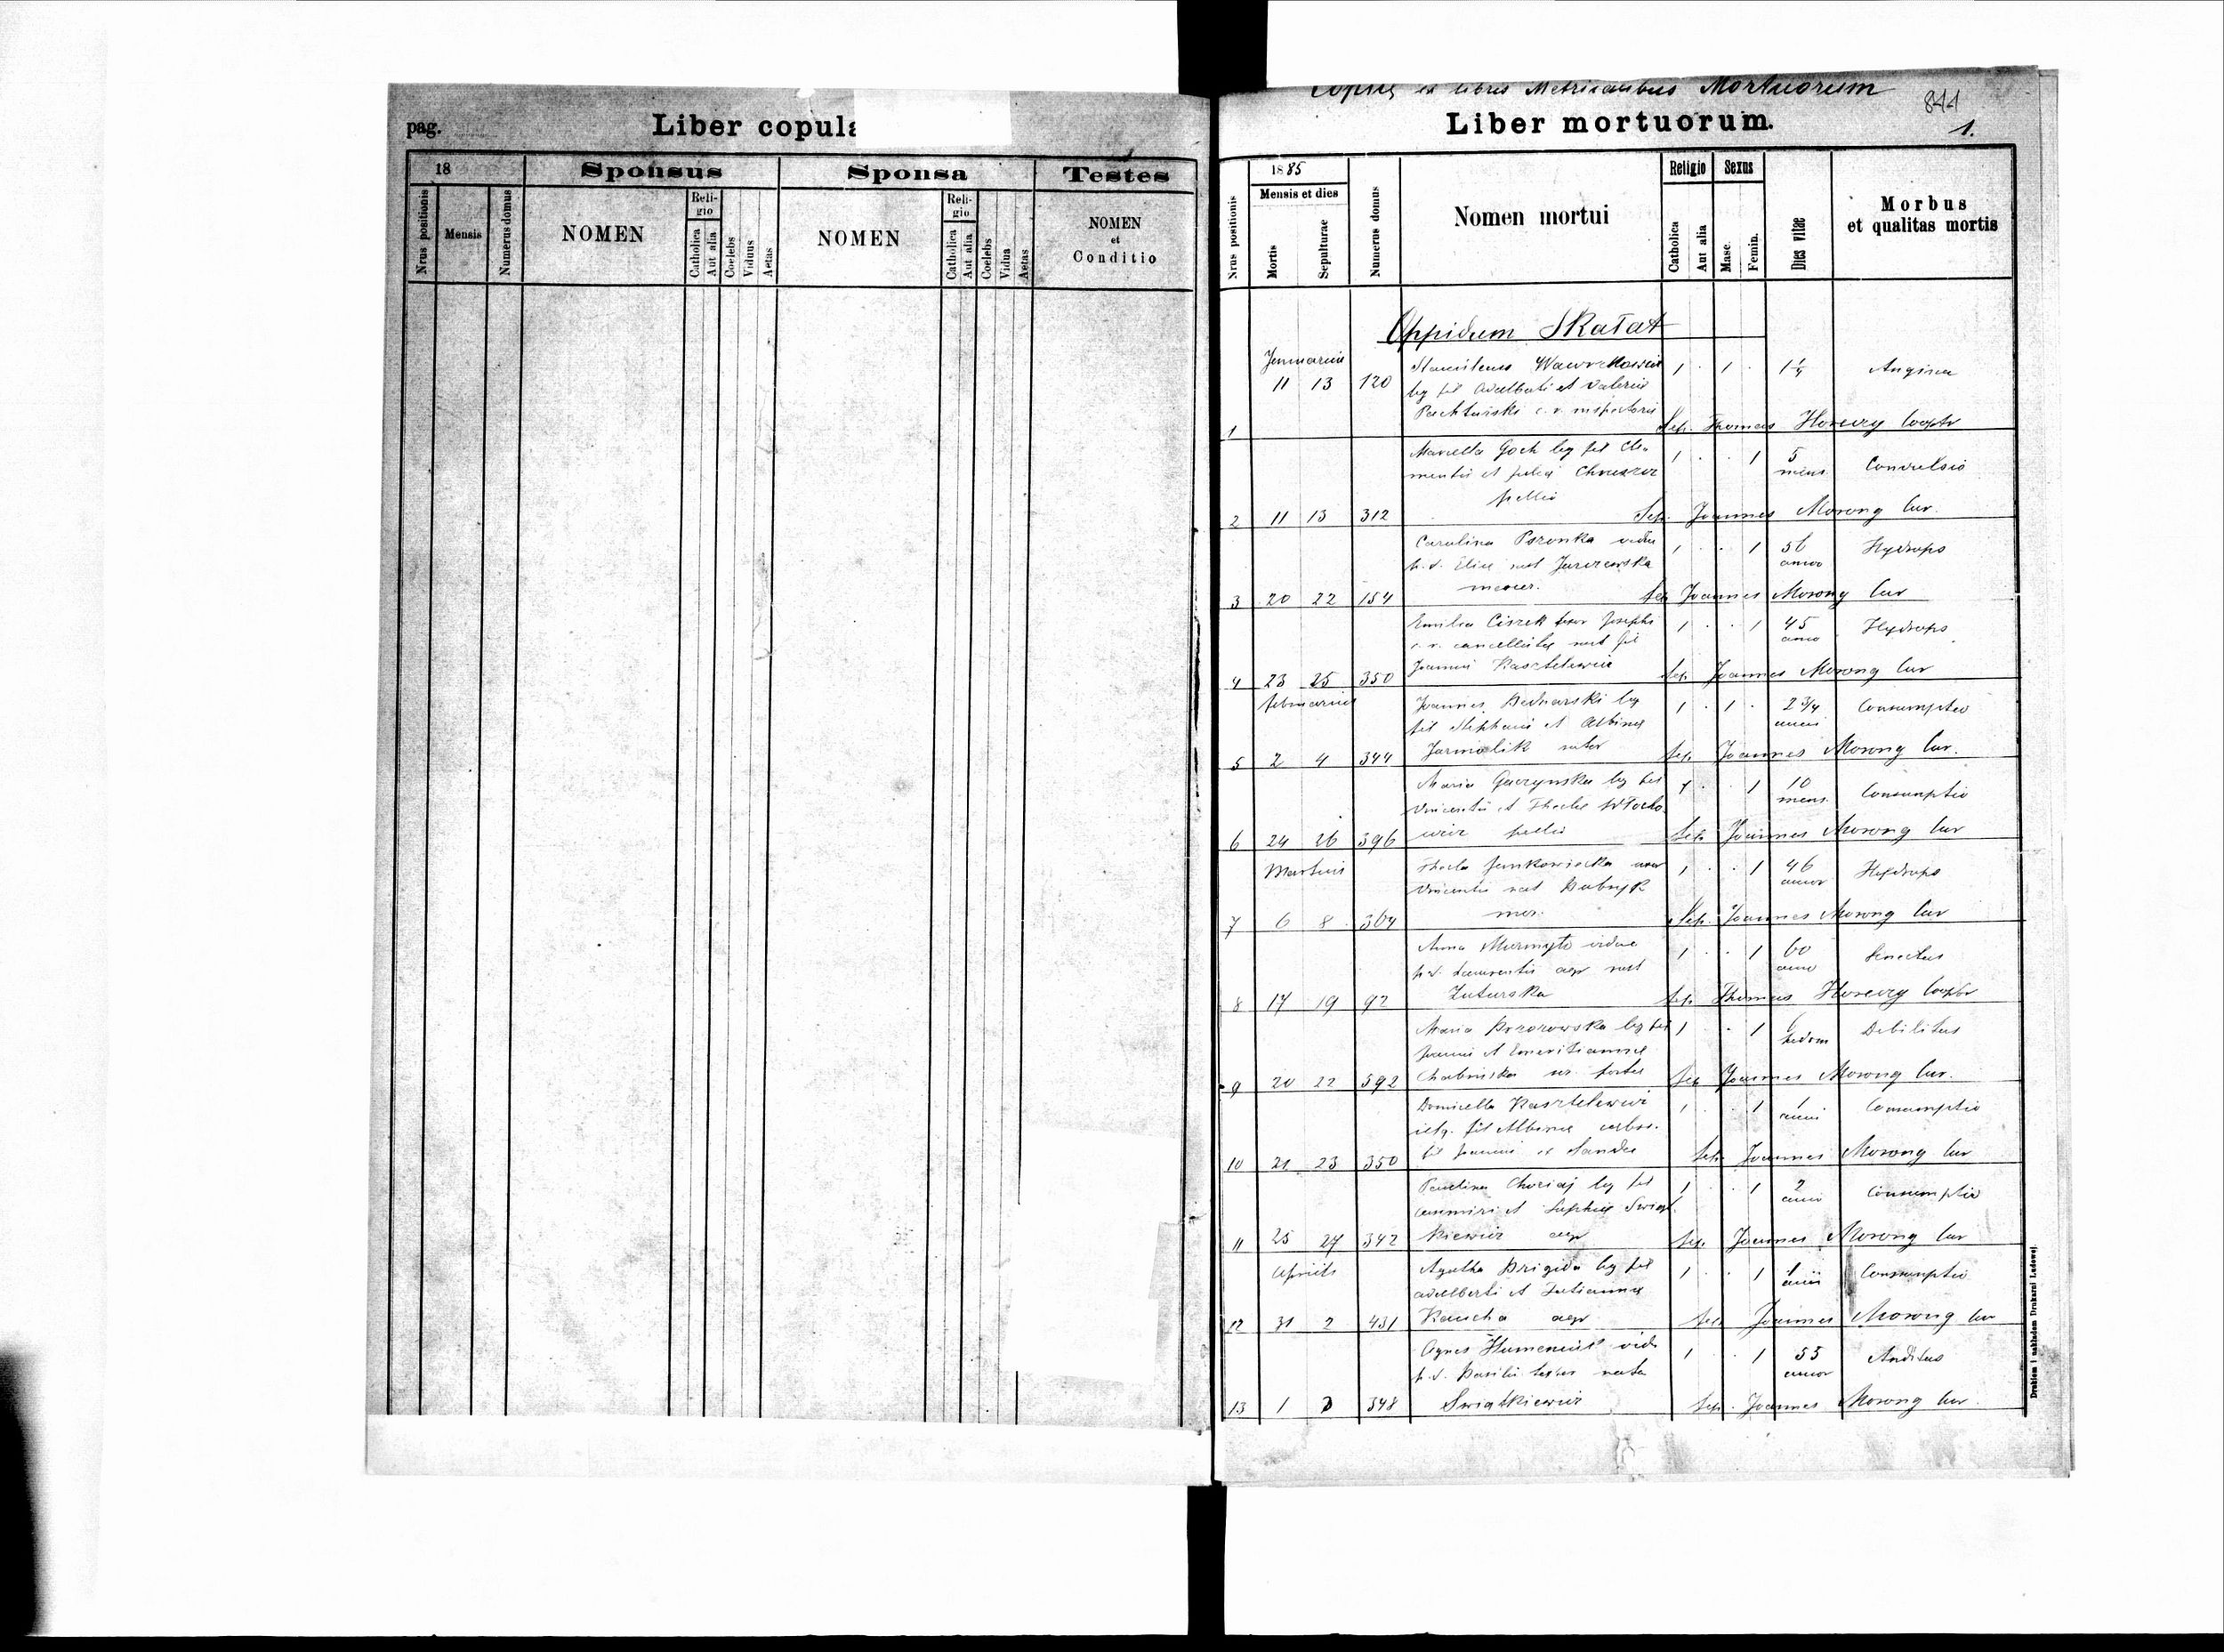 pag.
Liber copula
18
Sponsus
Sponsa
Testes
Nrus positionis
Mensis
Numerus domus
NOMEN
Reli-
gio
Catholica
Aut alia
Coelebs
Viduus
Aetas
NOMEN
Reli-
gio
Catholica
Aut alia
Coelebs
Vidua
Aetas
NOMEN
et
Conditio
ex libris Metricalibus Mortuorum
841
Liber mortuorum.
1.
Nrus positionis
1885
Mensis et dies
Mortis
Sepulturae
Numerus domus
Nomen mortui
Religio
Catholica
Aut alia
Sexus
Masc.
Femin.
Dies vitae
Morbus
et qualitas mortis
Oppidum Skałat
Januarius
11 13 120
leg fil Adalberti et Valeriae
1 1 1¼ Angina
1 Sep. Thomas Cooptr
Marcella Goch leg fil Cle-
mentis et Juliae
pellio
1 1 5 mens Convulsio
2 11 13 312 Sep. Joannes Morong Cur.
Carolina Psronka vidua
p. d. Eliae nat Jurczewska
mercr.
1 1 56 annor Hydrops
3 20 22 154 Sep Joannes Morong Cur
Emilia Ciszek uxor Josephi
c. r. nat fil
Joannis Kasztelewicz
1 1 45 anno Hydrops
4 23 25 350 Sep. Joannes Morong Cur
Februarius
Joannes Bednarski leg
fil Stephani et Albinae
Jarmolik sutor
1 1 2 3/4 anni Consumptio
5 2 4 344 Sep. Joannes Morong Cur.
Maria Gaczynska leg fil
Vincentii et Theclae Włocho-
wicz pellio
1 1 10 mens. Consumptio
6 24 26 396 Sep. Joannes Morong Cur
Martius
Thecla Jankowiecka uxor
Vincentii nat
mer.
1 1 46 annor Hydrops
7 6 8 364 Sep. Joannes Morong Cur
Anna Murmyło vidua
p. d. Laurentii agr nat
1 1 60 anno Senectus
8 17 19 92 Sep. Thomas Cooptr
Maria Brzozowska leg fil
Joannis et Emeritiannae
1 1 6 hedom Debilitas
9 20 22 592 Sep Joannes Morong Cur.
Domicella Kasztelewicz
illg. fil Albinae
fil Joannis et
1 1 1 anni Consumptio
10 21 23 350 Sep. Joannes Morong Cur
Paulina leg fil
Casimiri et Sophiae Swiąt-
kiewicz agr
1 1 2 anni Consumptio
11 25 27 342 Sep. Joannes Morong Cur
Aprilis
Agatha Brigida leg fil
Adalberti et Julianna
agr
1 1 1 anni Consumptio
12 31 2 431 Sep Joannes Morong Cur
Agnes Humeniuk vid.
p. d. Basilii nata
Swiątkiewicz
1 1 55 annor
13 1 3 348 Sep. Joannes Morong Cur.
Drukiem i nakładem Drukarni Ludowej.